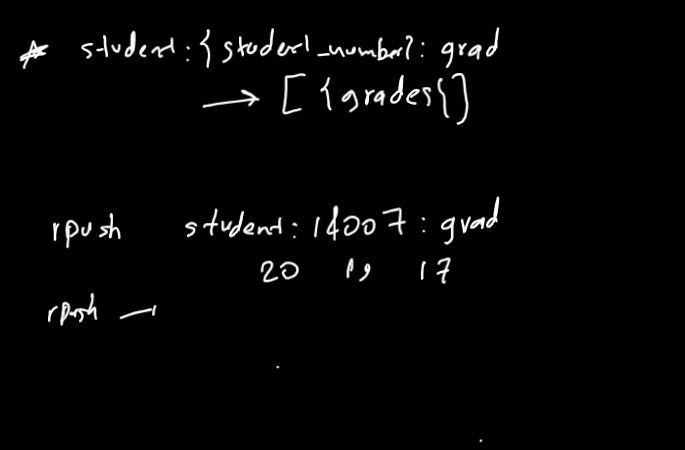 * student:{student_number}: grad
→ [{grades}]
rpush student:14007: grad
20 19 17
rpush —